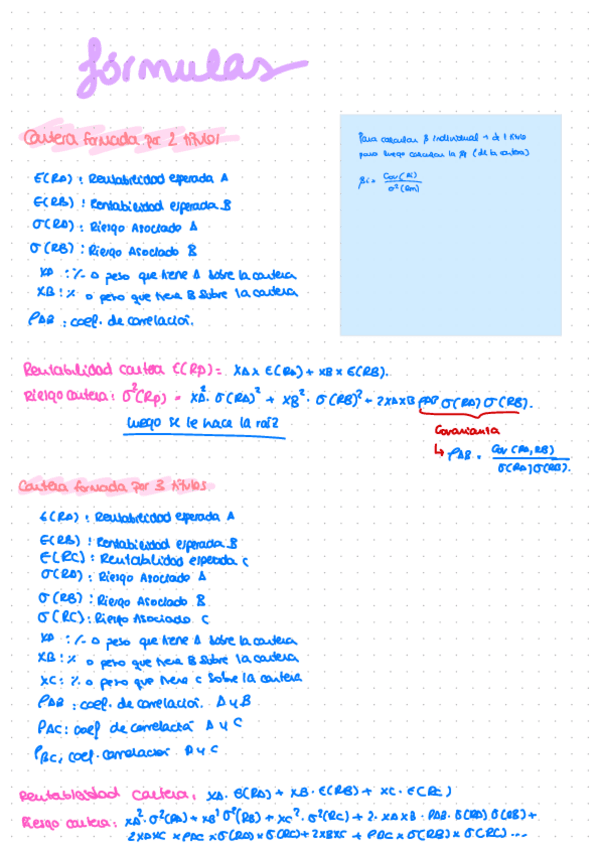 fórmulas
Cartera formada por 2 títulos
Para calcular β individual → de 1 título
para luego calcular la βp (de la cartera)
βi = Cov(Ri) / σ²(Rm)
E(RA) : Rentabilidad esperada A
E(RB) : Rentabilidad esperada B
σ(RA) : Riesgo Asociado A
σ(RB) : Riesgo Asociado B
XA : % o peso que tiene A sobre la cartera
XB : % o peso que tiene B sobre la cartera
ρAB : coef. de correlación.
Rentabilidad cartera E(Rp) = XA x E(RA) + XB x E(RB).
Riesgo cartera: σ²(Rp) = XA² · σ(RA)² + XB² · σ(RB)² + 2XAXB ρAB σ(RA) σ(RB).
luego se le hace la raíz
Covarianza
↳ ρAB = Cov (RA, RB) / σ(RA) σ(RB).
Cartera formada por 3 títulos
E(RA) : Rentabilidad esperada A
E(RB) : Rentabilidad esperada B
E(RC) : Rentabilidad esperada C
σ(RA) : Riesgo Asociado A
σ(RB) : Riesgo Asociado B
σ(RC) : Riesgo Asociado C
XA : % o peso que tiene A sobre la cartera
XB : % o peso que tiene B sobre la cartera
XC : % o peso que tiene C sobre la cartera
ρAB : coef. de correlación. A y B
ρAC : coef de correlación A y C
ρBC, coef. correlación A y C
Rentabilidad cartera: XA · E(RA) + XB · E(RB) + XC · E(RC)
Riesgo cartera: XA² · σ²(RA) + XB² σ²(RB) + XC² · σ²(RC) + 2 · XAXB · ρAB · σ(RA) σ(RB) +
2XAXC x ρAC x σ(RA) x σ(RC) + 2XBXC + ρBC x σ(RB) x σ(RC) ...